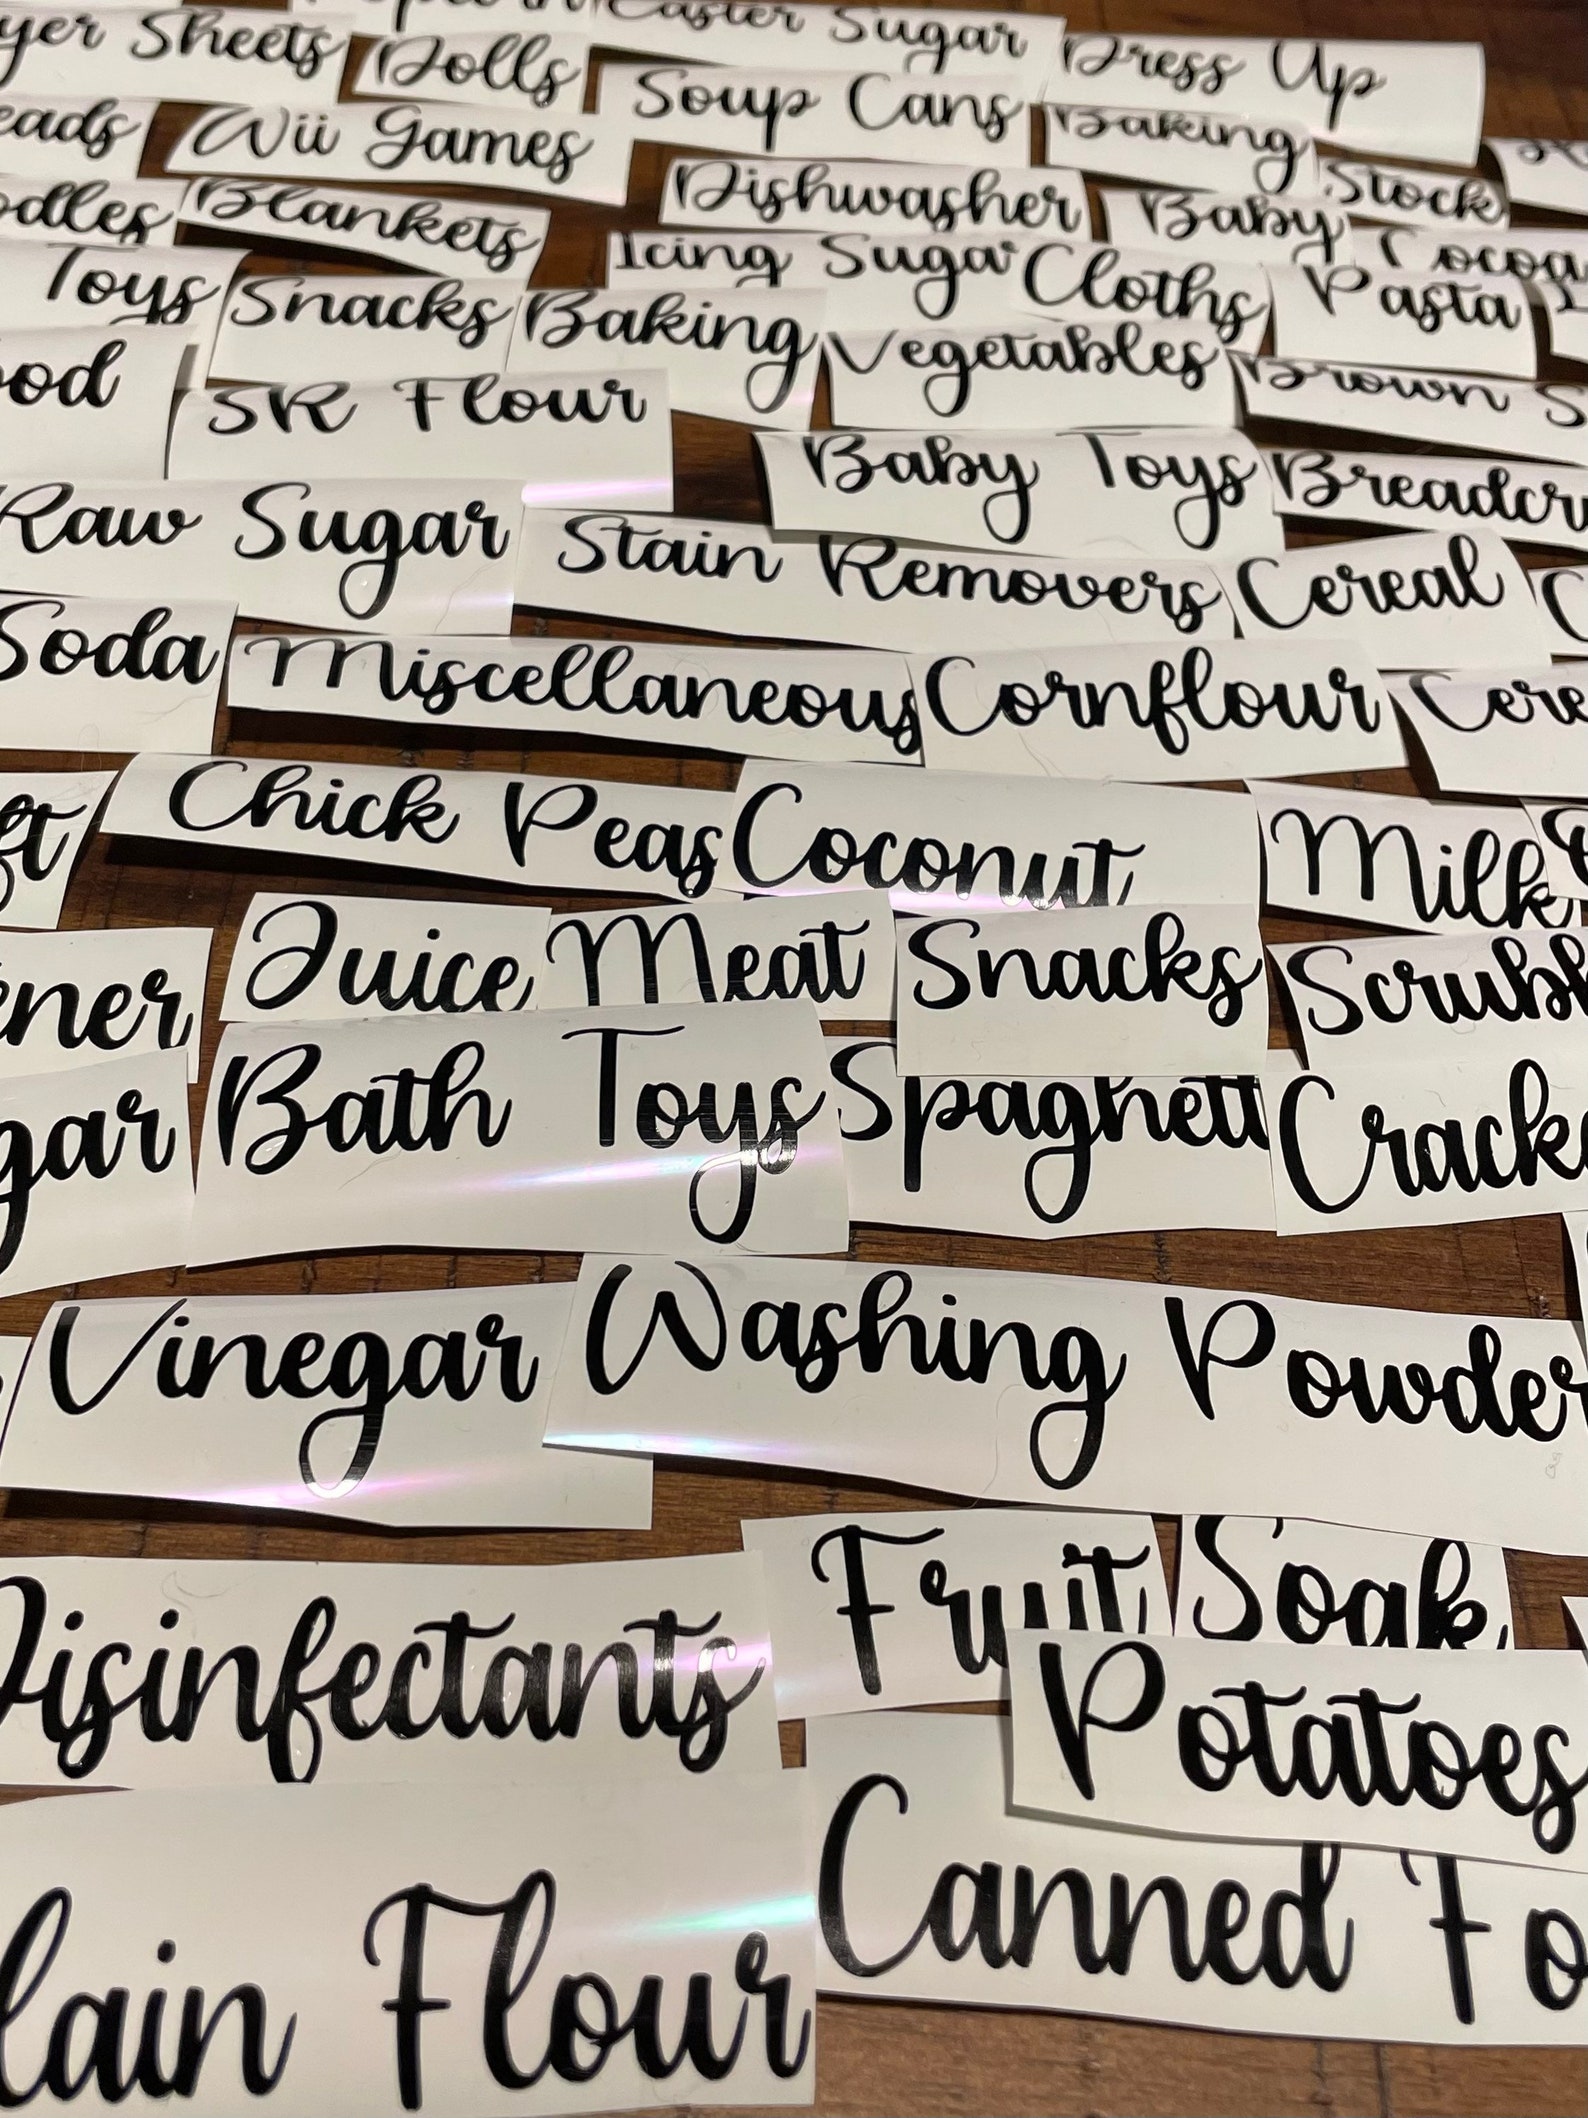 Caster Sugar
yer Sheets
Dolls
Dress Up
Soup Cans
eads
Wii Games
Baking
Dishwasher
Stock
odles
Blankets
Baby
Icing Sugar
Cocoa
Toys
Cloths
Pasta
Snacks
Baking
Vegetables
ood
SR Flour
Brown S
Baby Toys
Breadcru
Raw Sugar
Stain Removers
Cereal
Soda
Miscellaneous
Cornflour
Cere
Chick Peas
Coconut
Milk
ft
Juice
Meat
Snacks
Scrubb
ener
Bath Toys
Spaghett
Cracke
gar
Vinegar
Washing Powder
Fruit
Soak
Disinfectants
Potatoes
Canned Fo
lain Flour